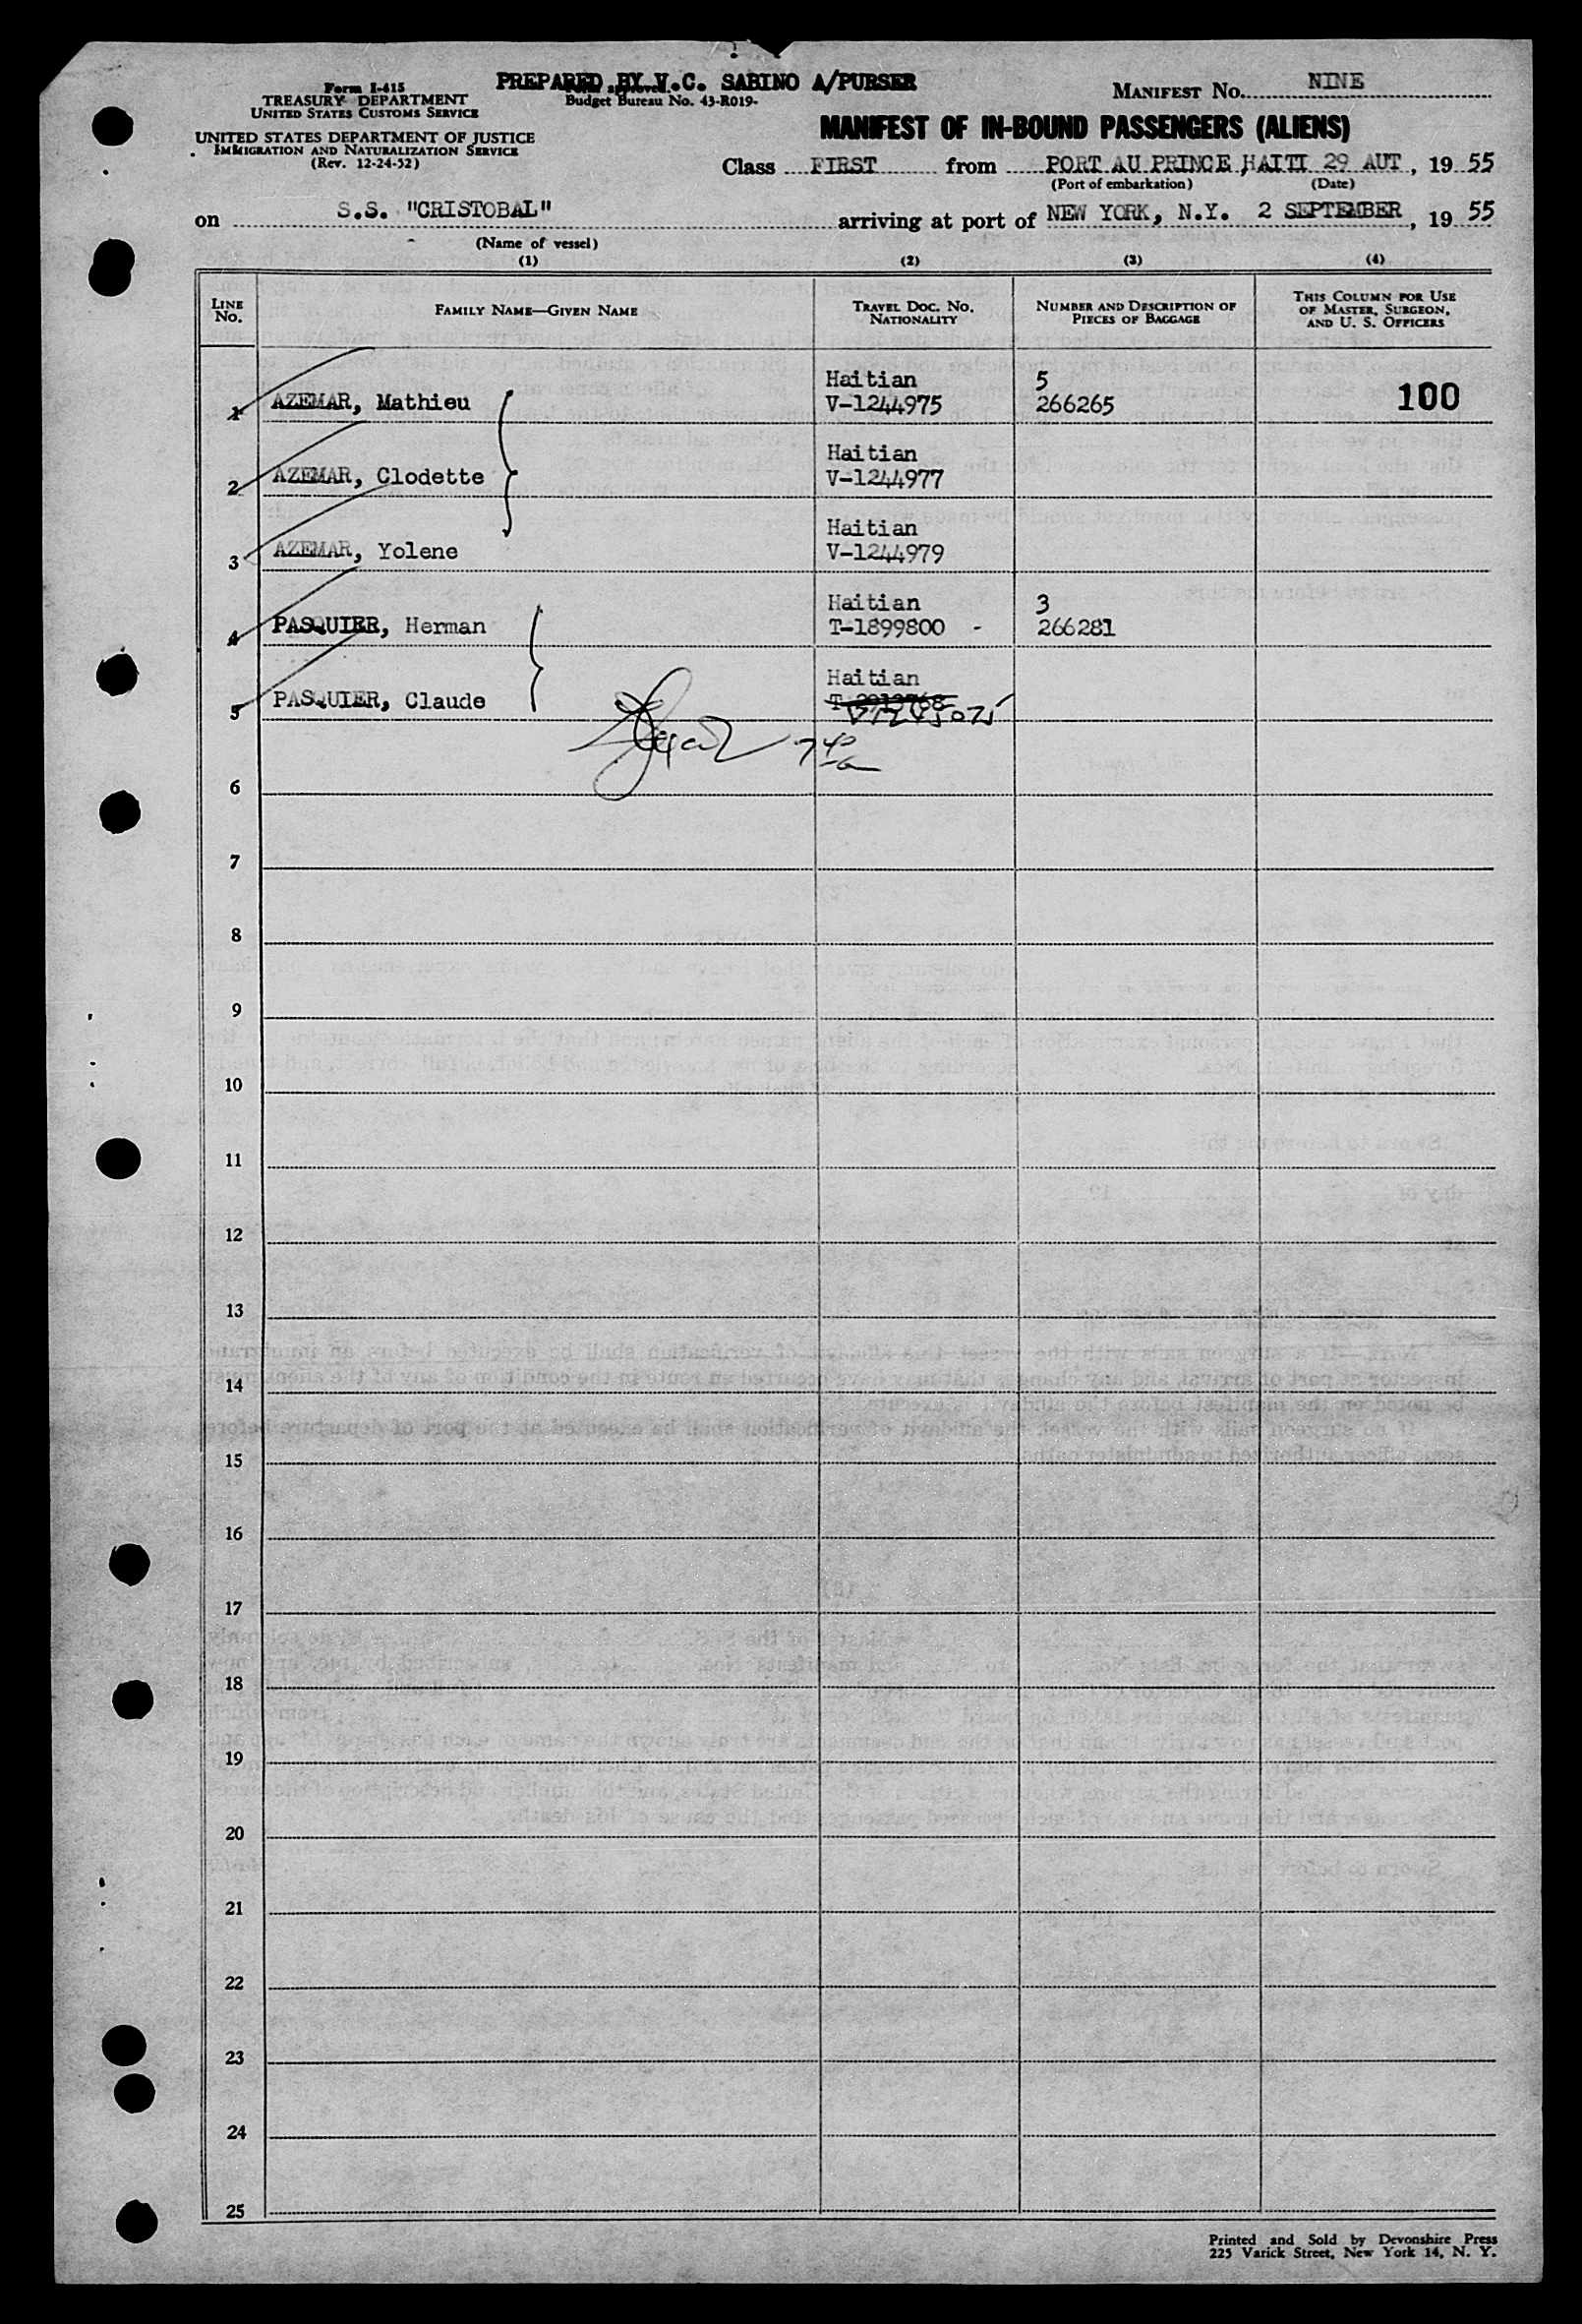 PREPARED BY V.C. SABINO A/PURSER
Form I-415
TREASURY DEPARTMENT
UNITED STATES CUSTOMS SERVICE
UNITED STATES DEPARTMENT OF JUSTICE
IMMIGRATION AND NATURALIZATION SERVICE
(Rev. 12-24-52)
Form approved.
Budget Bureau No. 43-R019-
MANIFEST No. NINE
MANIFEST OF IN-BOUND PASSENGERS (ALIENS)
Class FIRST from PORT AU PRINCE, HAITI 29 AUT, 19 55
(Port of embarkation) (Date)
on S.S. "CRISTOBAL" arriving at port of NEW YORK, N.Y. 2 SEPTEMBER, 19 55
(Name of vessel)
(1) (2) (3) (4)
LINE No. FAMILY NAME—GIVEN NAME TRAVEL DOC. NO. NATIONALITY NUMBER AND DESCRIPTION OF PIECES OF BAGGAGE THIS COLUMN FOR USE OF MASTER, SURGEON, AND U. S. OFFICERS
Haitian 5
1 AZEMAR, Mathieu V-1244975 266265 100
Haitian
2 AZEMAR, Clodette V-1244977
Haitian
3 AZEMAR, Yolene V-1244979
Haitian 3
4 PASQUIER, Herman T-1899800 - 266281
Haitian
5 PASQUIER, Claude
6
7
8
9
10
11
12
13
14
15
16
17
18
19
20
21
22
23
24
25
Printed and Sold by Devonshire Press
225 Varick Street, New York 14, N. Y.